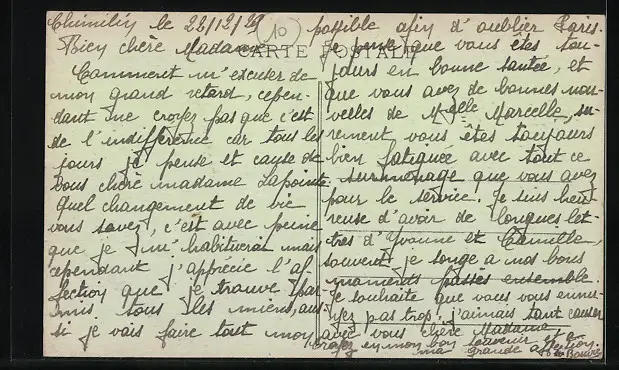 le 22/12/29
10
CARTE POSTALE
Bien chère Madame
Comment m'excuser de
mon grand retard, cepen-
dant ne croyez pas que c'est
de l'indifférence car tous les
jours je pense et cause de
vous chère madame Lapointe
Quel changement de vie
vous savez, c'est avec peine
que je m'habituerai mais
cependant j'apprécie l'af-
fection que je trouve par-
mis tous les miens, aus-
si je vais faire tout mon
possible afin d'oublier Paris.
Je pense que vous êtes tou-
jours en bonne santée, et
que vous avez de bonnes nou-
velles de Melle Marcelle, su-
rement vous êtes toujours
bien fatiguée avec tout ce
surménage que vous avez
pour le service. Je suis heu-
reuse d'avoir de longues let-
tres d'Yvonne et Camille,
souvent je songe a nos bons
moments passés ensemble.
Je souhaite que vous vous ennu-
yez pas trop, j'aimais tant causer
avec vous chère Madame,
Croyez en mon bon souvenir et a
ma grande affection.